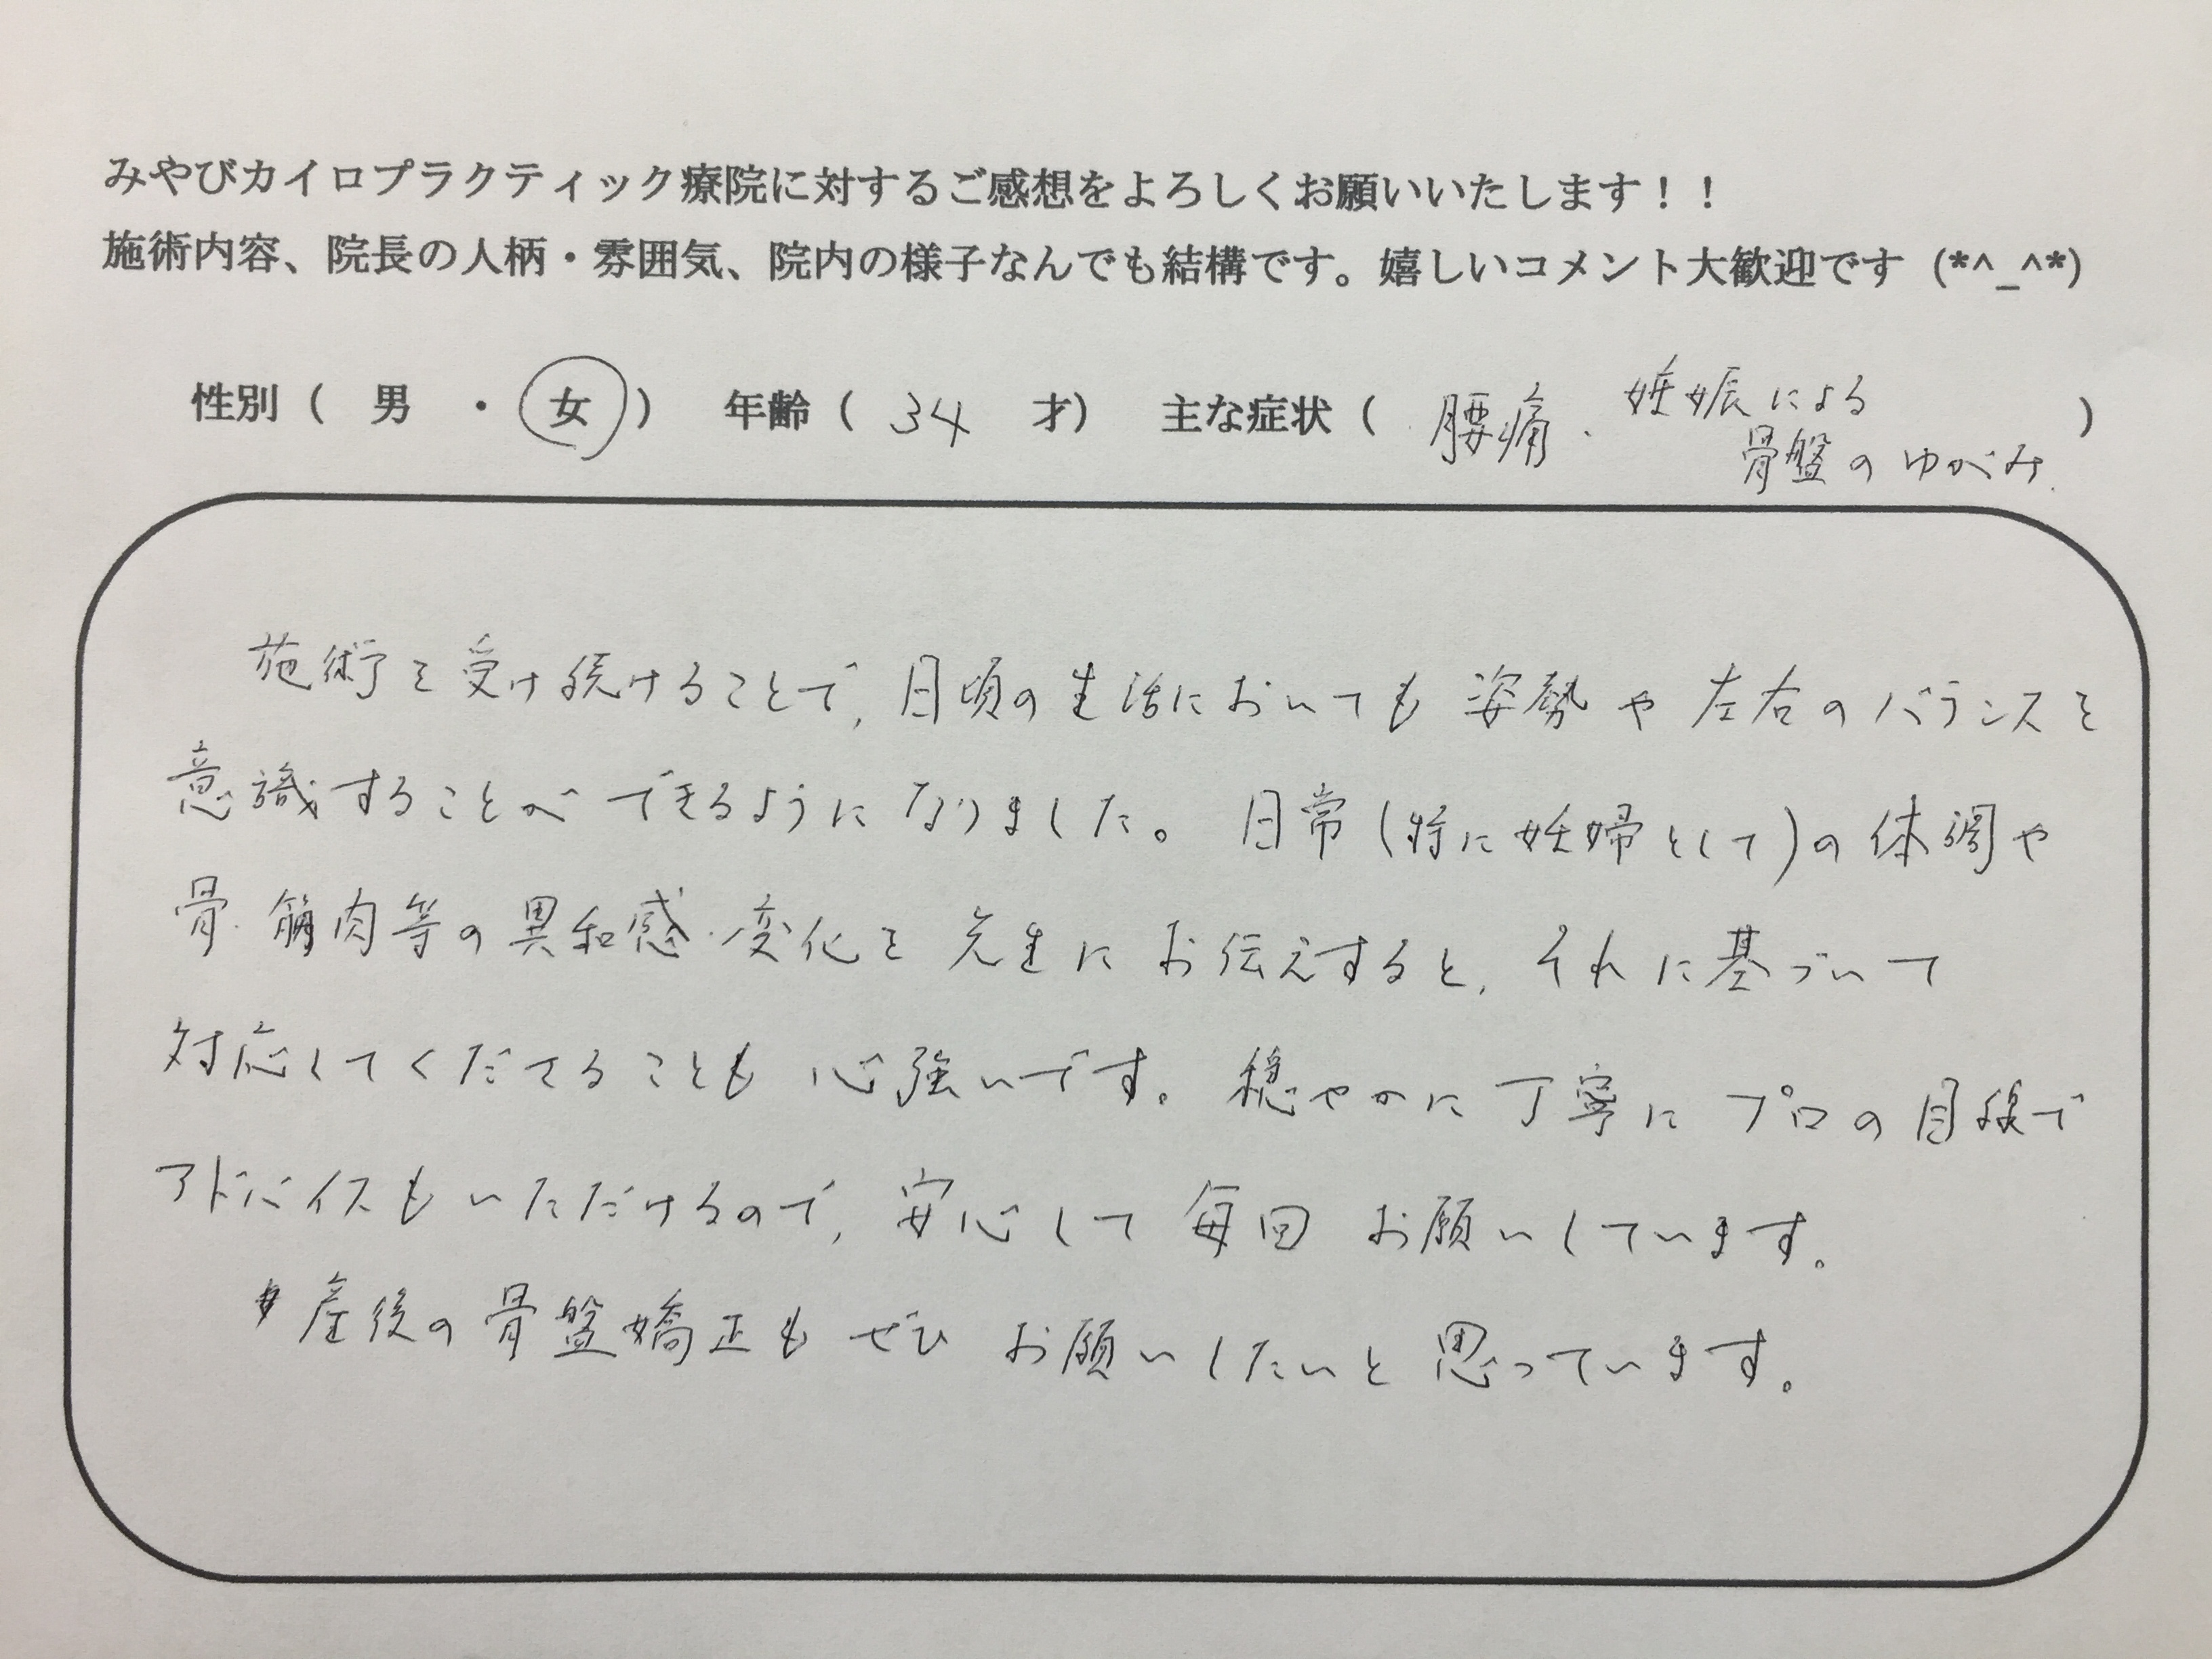 みやびカイロプラクティック療院に対するご感想をよろしくお願いいたします！！
施術内容、院長の人柄・雰囲気、院内の様子なんでも結構です。嬉しいコメント大歓迎です (*^_^*)
性別（ 男 ・ 女 ） 年齢（ 34 才） 主な症状（ 腰痛・妊娠による
骨盤のゆがみ. ）
施術を受け続けることで、日頃の生活においても姿勢や左右のバランスを
意識することができるようになりました。日常(特に妊婦として)の体調や
骨・筋肉等の異和感・変化を先生にお伝えすると、それに基づいて
対応してくださることも心強いです。穏やかに丁寧にプロの目線で
アドバイスもいただけるので、安心して毎回お願いしています。
産後の骨盤矯正もぜひお願いしたいと思っています。